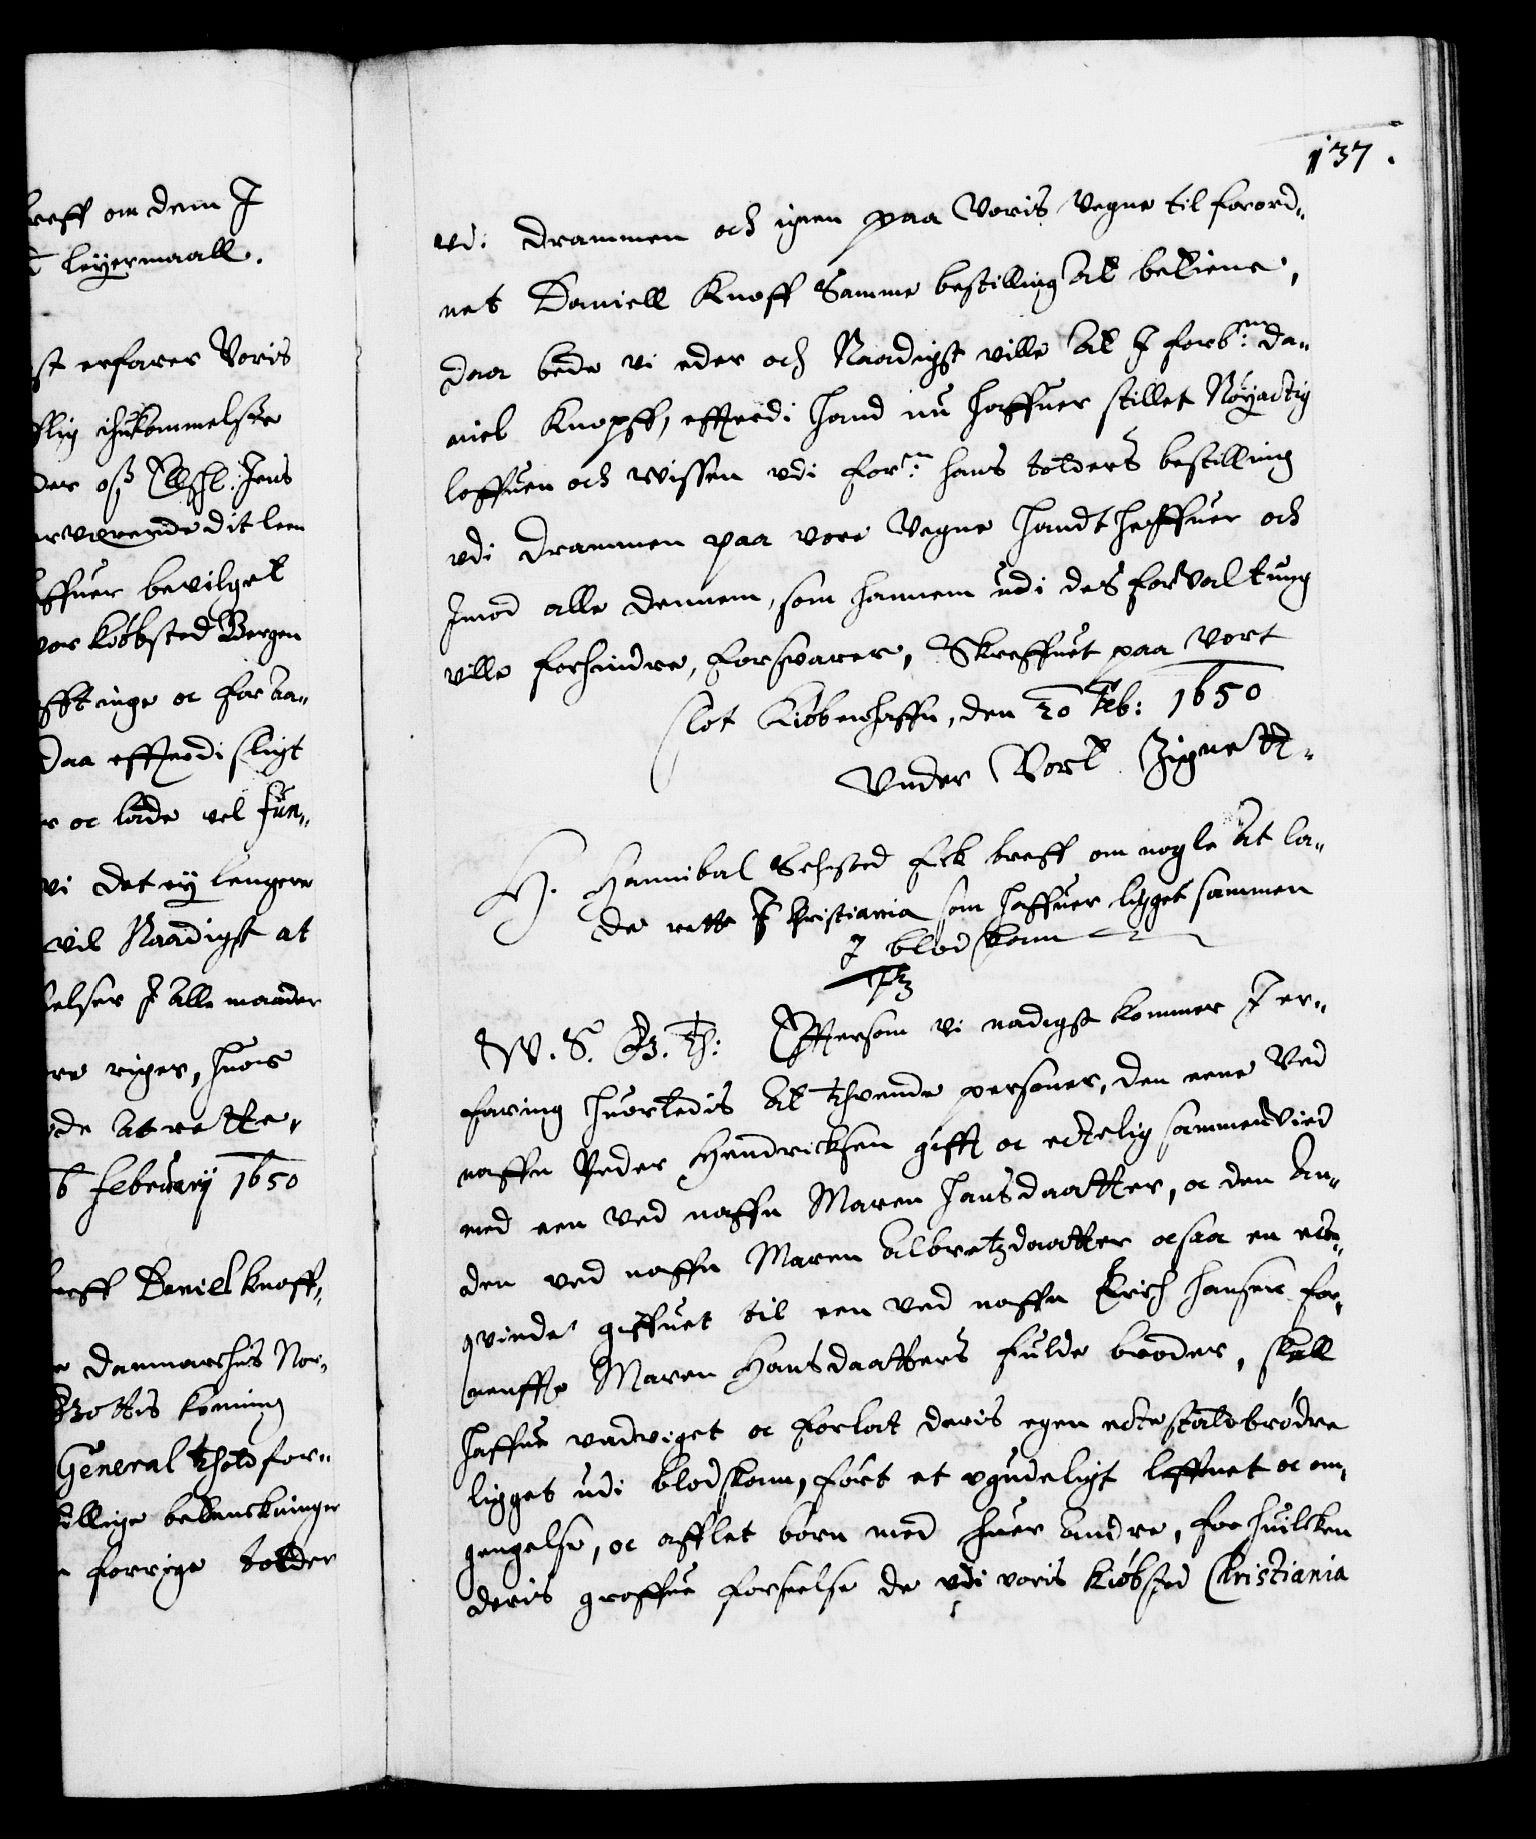 breff om dem J
leyermaall.
st erfarer Voris
flig ihukommelsze
der osz Welb: Jens
erværende dit leen
affuer bevilget
vor kiøbsted Bergen
afftinge oc forbe-
Daa effterdi sligt
r oc lade vel fun-
vi det ey lengere
vil Naadigst at
lelser J alle maader
re riger, huos
de at rette,
6 Februarij 1650
breff Daniel Knoff,
e Danmarchis Nor-
Gottis koning
General tholdfor-
billige betenckninger
forrige tolder
137.
vdi Drammen och igien paa Voris Vegne til forord-
net Daniell Knoff Samme bestilling at betiene,
daa bede vi eder och Naadigst ville at J forb:ne Da-
niel Knopff, effterdi hand nu haffuer stillet Nøyactig
loffuen och wissen vdi for:ne hans tolders bestilling
vdi Drammen paa vore Vegne handthæffuer och
Jmod alle dennem, som hannem udi des forvaltung
ville forhindre, forsvarer, Skreffuet paa Vort
slot Kiøbenhaffn, den 20 Feb: 1650
Under Vort Zignett.
H. Hannibal Sehsted fick breff om nogle at la-
de rette J Christiania som haffuer ligget sammen
J blodskam
F3
W. S. G. T: Effttersom vi nadigst kommer J er-
faring huorledis at thvende personer, den eene Ved
naffn Peder Hendrichsen gifft oc ectelig sammenvied
med een ved naffn Maren Hansdaatter, oc den an-
den ved naffn Maren Albretzdaatter ocsaa en ecte-
qvinde giffuet til een ved naffn Erich Hansen for-
neffte Maren Hansdaatters fulde broder, skall
haffue undviget oc forlat deris egen ectestalbrødre
ligget udi blodskam, ført et ugudeligt leffnet oc om-
gengelse, oc afflet børn med huer andre, for huilcken
deris groffue forseelse de vdi voris kiøbsted Christiania